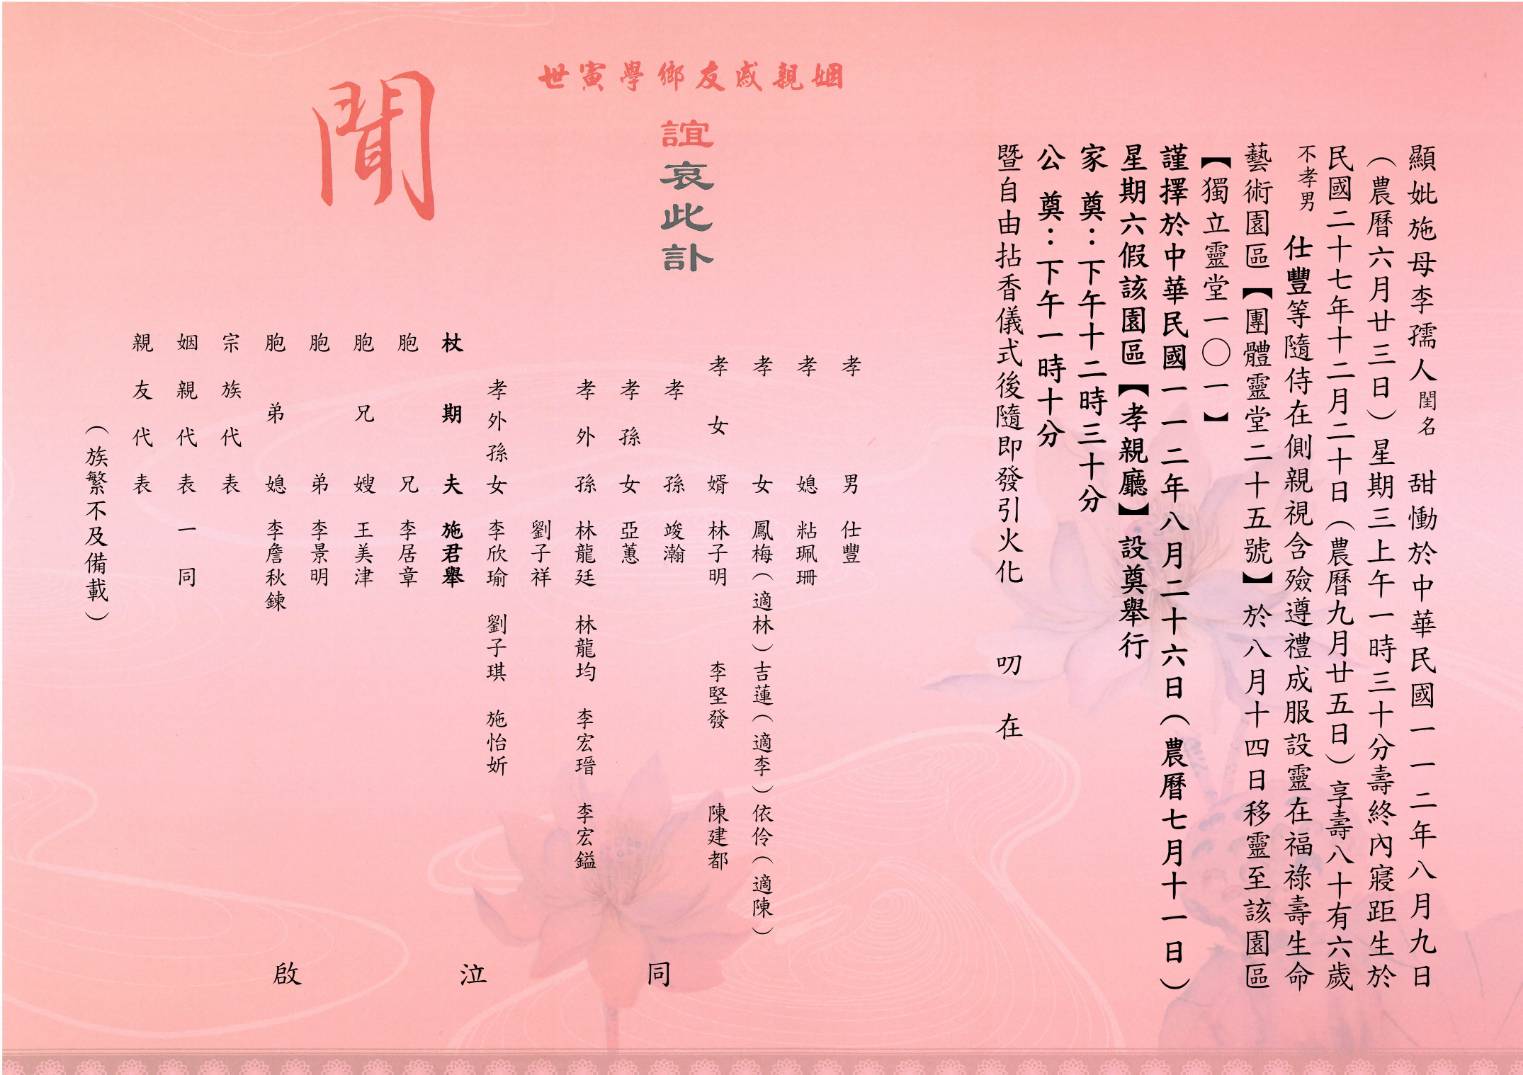 顯妣施母李孺人閨名 甜慟於中華民國一一二年八月九日
（農曆六月廿三日）星期三上午一時三十分壽終內寢距生於
民國二十七年十二月二十日（農曆九月廿五日）享壽八十有六歲
不孝男 仕豐等隨侍在側親視含殮遵禮成服設靈在福祿壽生命
藝術園區【團體靈堂二十五號】於八月十四日移靈至該園區
【獨立靈堂一〇一】
謹擇於中華民國一一二年八月二十六日（農曆七月十一日）
星期六假該園區【孝親廳】設奠舉行
家 奠：下午十二時三十分
公 奠：下午一時十分
暨自由拈香儀式後隨即發引火化 叨 在
姻親戚友鄉學寅世
誼哀此訃
聞
孝男 仕豐
孝媳 粘珮珊
孝女 鳳梅（適林）吉蓮（適李）依伶（適陳）
孝女婿 林子明 李堅發 陳建都
孝孫 竣瀚
孝孫女 亞蕙
孝外孫 林龍廷 林龍均 李宏瑨 李宏鎰
劉子祥
孝外孫女 李欣瑜 劉子琪 施怡妡
杖期夫 施君舉
胞兄 李居章
胞兄嫂 王美津
胞弟 李景明
胞弟媳 李詹秋鍊
宗族代表
姻親代表一同
親友代表
（族繁不及備載）
同 泣 啟